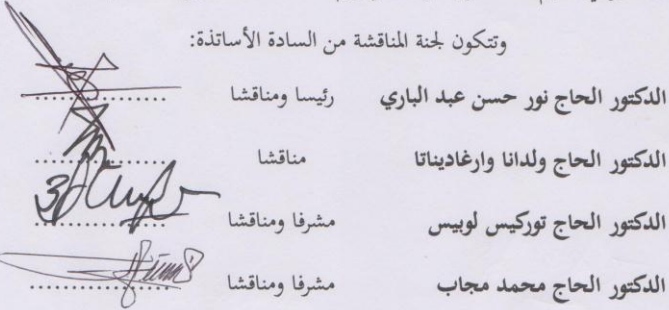 وتتكون لجنة المناقشة من السادة الأساتذة:
الدكتور الحاج نور حسن عبد الباري رئيسا ومناقشا ..................
الدكتور الحاج ولدانا وارغاديناتا مناقشا ..................
الدكتور الحاج توركيس لوبيس مشرفا ومناقشا ..................
الدكتور الحاج محمد مجاب مشرفا ومناقشا ..................